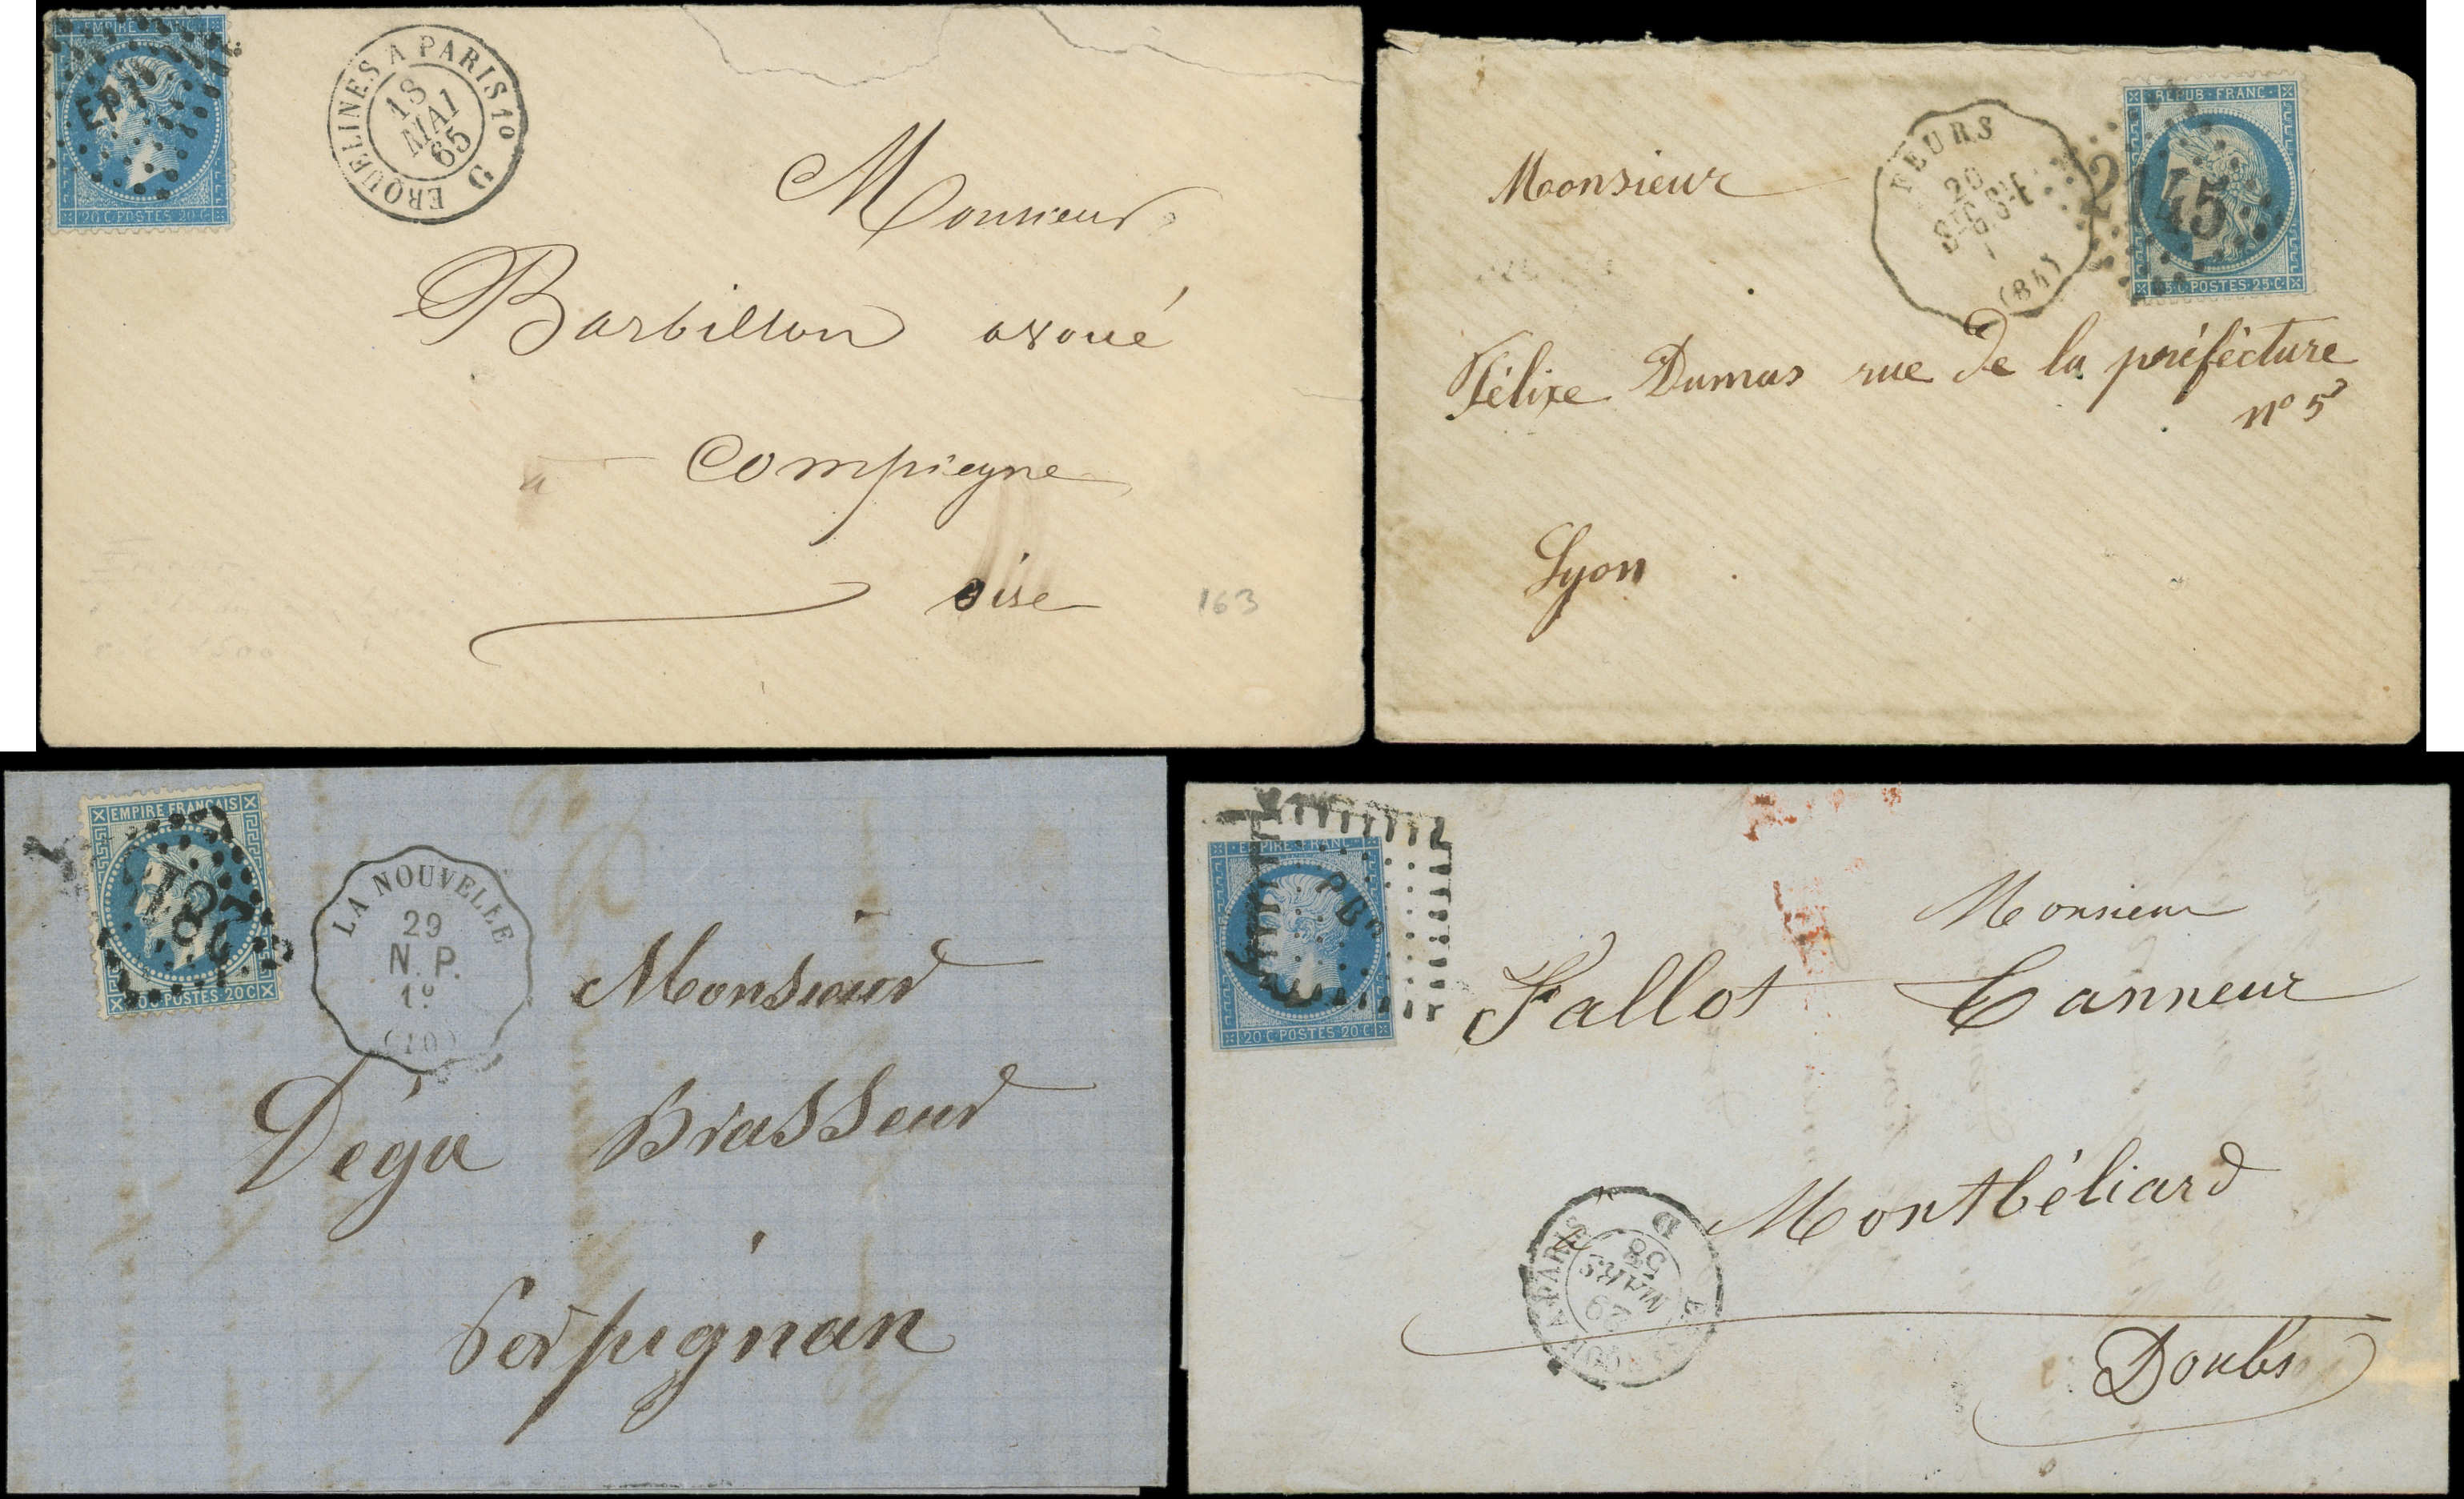 EMPIRE FRANC
EP1º
20 C POSTES 20 C
ERQUELINES A PARIS 1º
18
MAI
65
G
Monsieur
Barbillon avoué
à Compiegne
oise
163
FEURS
20
(84)
REPUB FRANC
2145
25 C POSTES 25 C
Monsieur
Félixe Dumas rue de la préfécture
nº 5
Lyon
EMPIRE FRANÇAIS
20 C POSTES 20 C
LA NOUVELLE
29
N. P.
1º
(10)
Monsieur
Déga Brasseur
Perpignan
EMPIRE FRANC
20 C POSTES 20 C
Monsieur
Fallot Tanneur
Montbéliard
Doubs
29
MARS
58
D